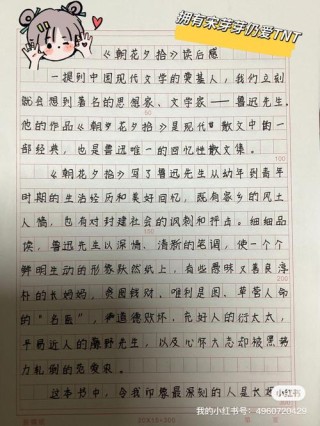 拥有宋芽芽仍爱TNT
《朝花夕拾》读后感
一提到中国现代文学的奠基人，我们立刻
就会想到著名的思想家、文学家——鲁迅先生。
他的作品《朝花夕拾》是现代散文中的一
部经典，也是鲁迅唯一的回忆性散文集。
100
《朝花夕拾》写了鲁迅先生从幼年到青年
时期的生活经历和美好回忆，既有家乡的风土
人情，也有对封建社会的讽刺和抨击。细细品
读，鲁迅先生以深情、清新的笔调，使一个个
鲜明生动的形象跃然纸上，有些愚昧又善良淳
朴的长妈妈，贪图钱财、唯利是图、草菅人命
的“名医”，道德败坏、充好人的衍太太，
平易近人的藤野先生，以及心怀大志却被黑势
力札倒的范爱农。
这本书中，令我印象最深刻的人是长妈
小红书
我的小红书号：4960720429